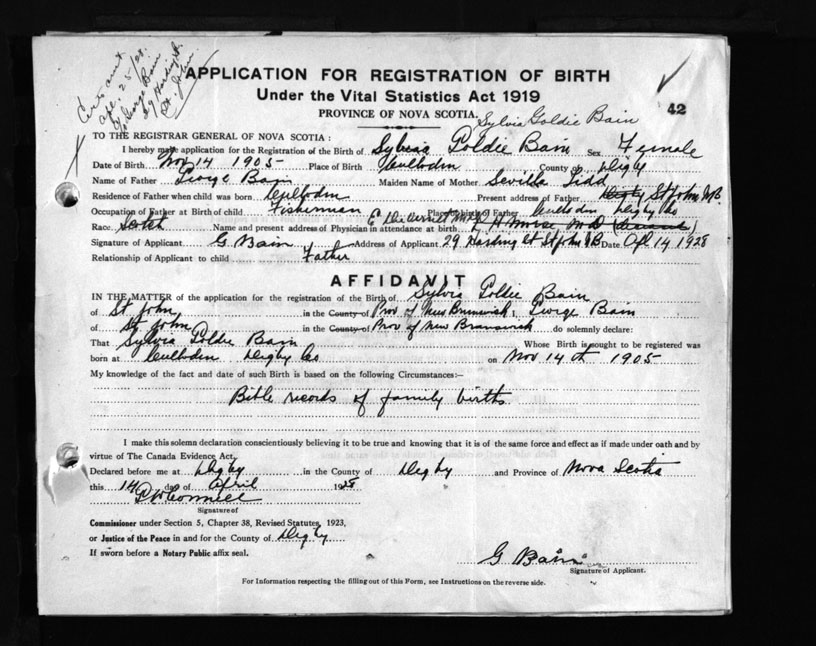 Cert sent
apl 25/28.
to George Bain
29 Harding St.
St. John.
APPLICATION FOR REGISTRATION OF BIRTH
Under the Vital Statistics Act 1919
42
PROVINCE OF NOVA SCOTIA.
Sylvia Goldie Bain
TO THE REGISTRAR GENERAL OF NOVA SCOTIA:
I hereby make application for the Registration of the Birth of Sylvia Goldie Bain Sex Female
Date of Birth Nov 14 1905 Place of Birth Culloden County of Digby
Name of Father George Bain Maiden Name of Mother Sevilla
Residence of Father when child was born Culloden Present address of Father Digby St John N.B.
Occupation of Father at Birth of child Fisherman Place of birth of Father Culloden Digby Co
Race Scotch Name and present address of Physician in attendance at birth M.D.
Signature of Applicant G. Bain Address of Applicant 29 Harding St St John NB Date Apl 14 1928
Relationship of Applicant to child Father
AFFIDAVIT
IN THE MATTER of the application for the registration of the Birth of Sylvia Goldie Bain
of St John in the County of Prov of New Brunswick I, George Bain
of St John in the County of Prov of New Brunswick do solemnly declare:
That Sylvia Goldie Bain Whose Birth is sought to be registered was
born at Culloden Digby Co on Nov 14th 1905
My knowledge of the fact and date of such Birth is based on the following Circumstances:—
Bible records of family births
I make this solemn declaration conscientiously believing it to be true and knowing that it is of the same force and effect as if made under oath and by
virtue of The Canada Evidence Act.
Declared before me at Digby in the County of Digby and Province of Nova Scotia
this 14 day of April 1928
Signature of
Commissioner under Section 5, Chapter 38, Revised Statutes, 1923,
or Justice of the Peace in and for the County of Digby
If sworn before a Notary Public affix seal.
G Bain
Signature of Applicant.
For Information respecting the filling out of this Form, see Instructions on the reverse side.